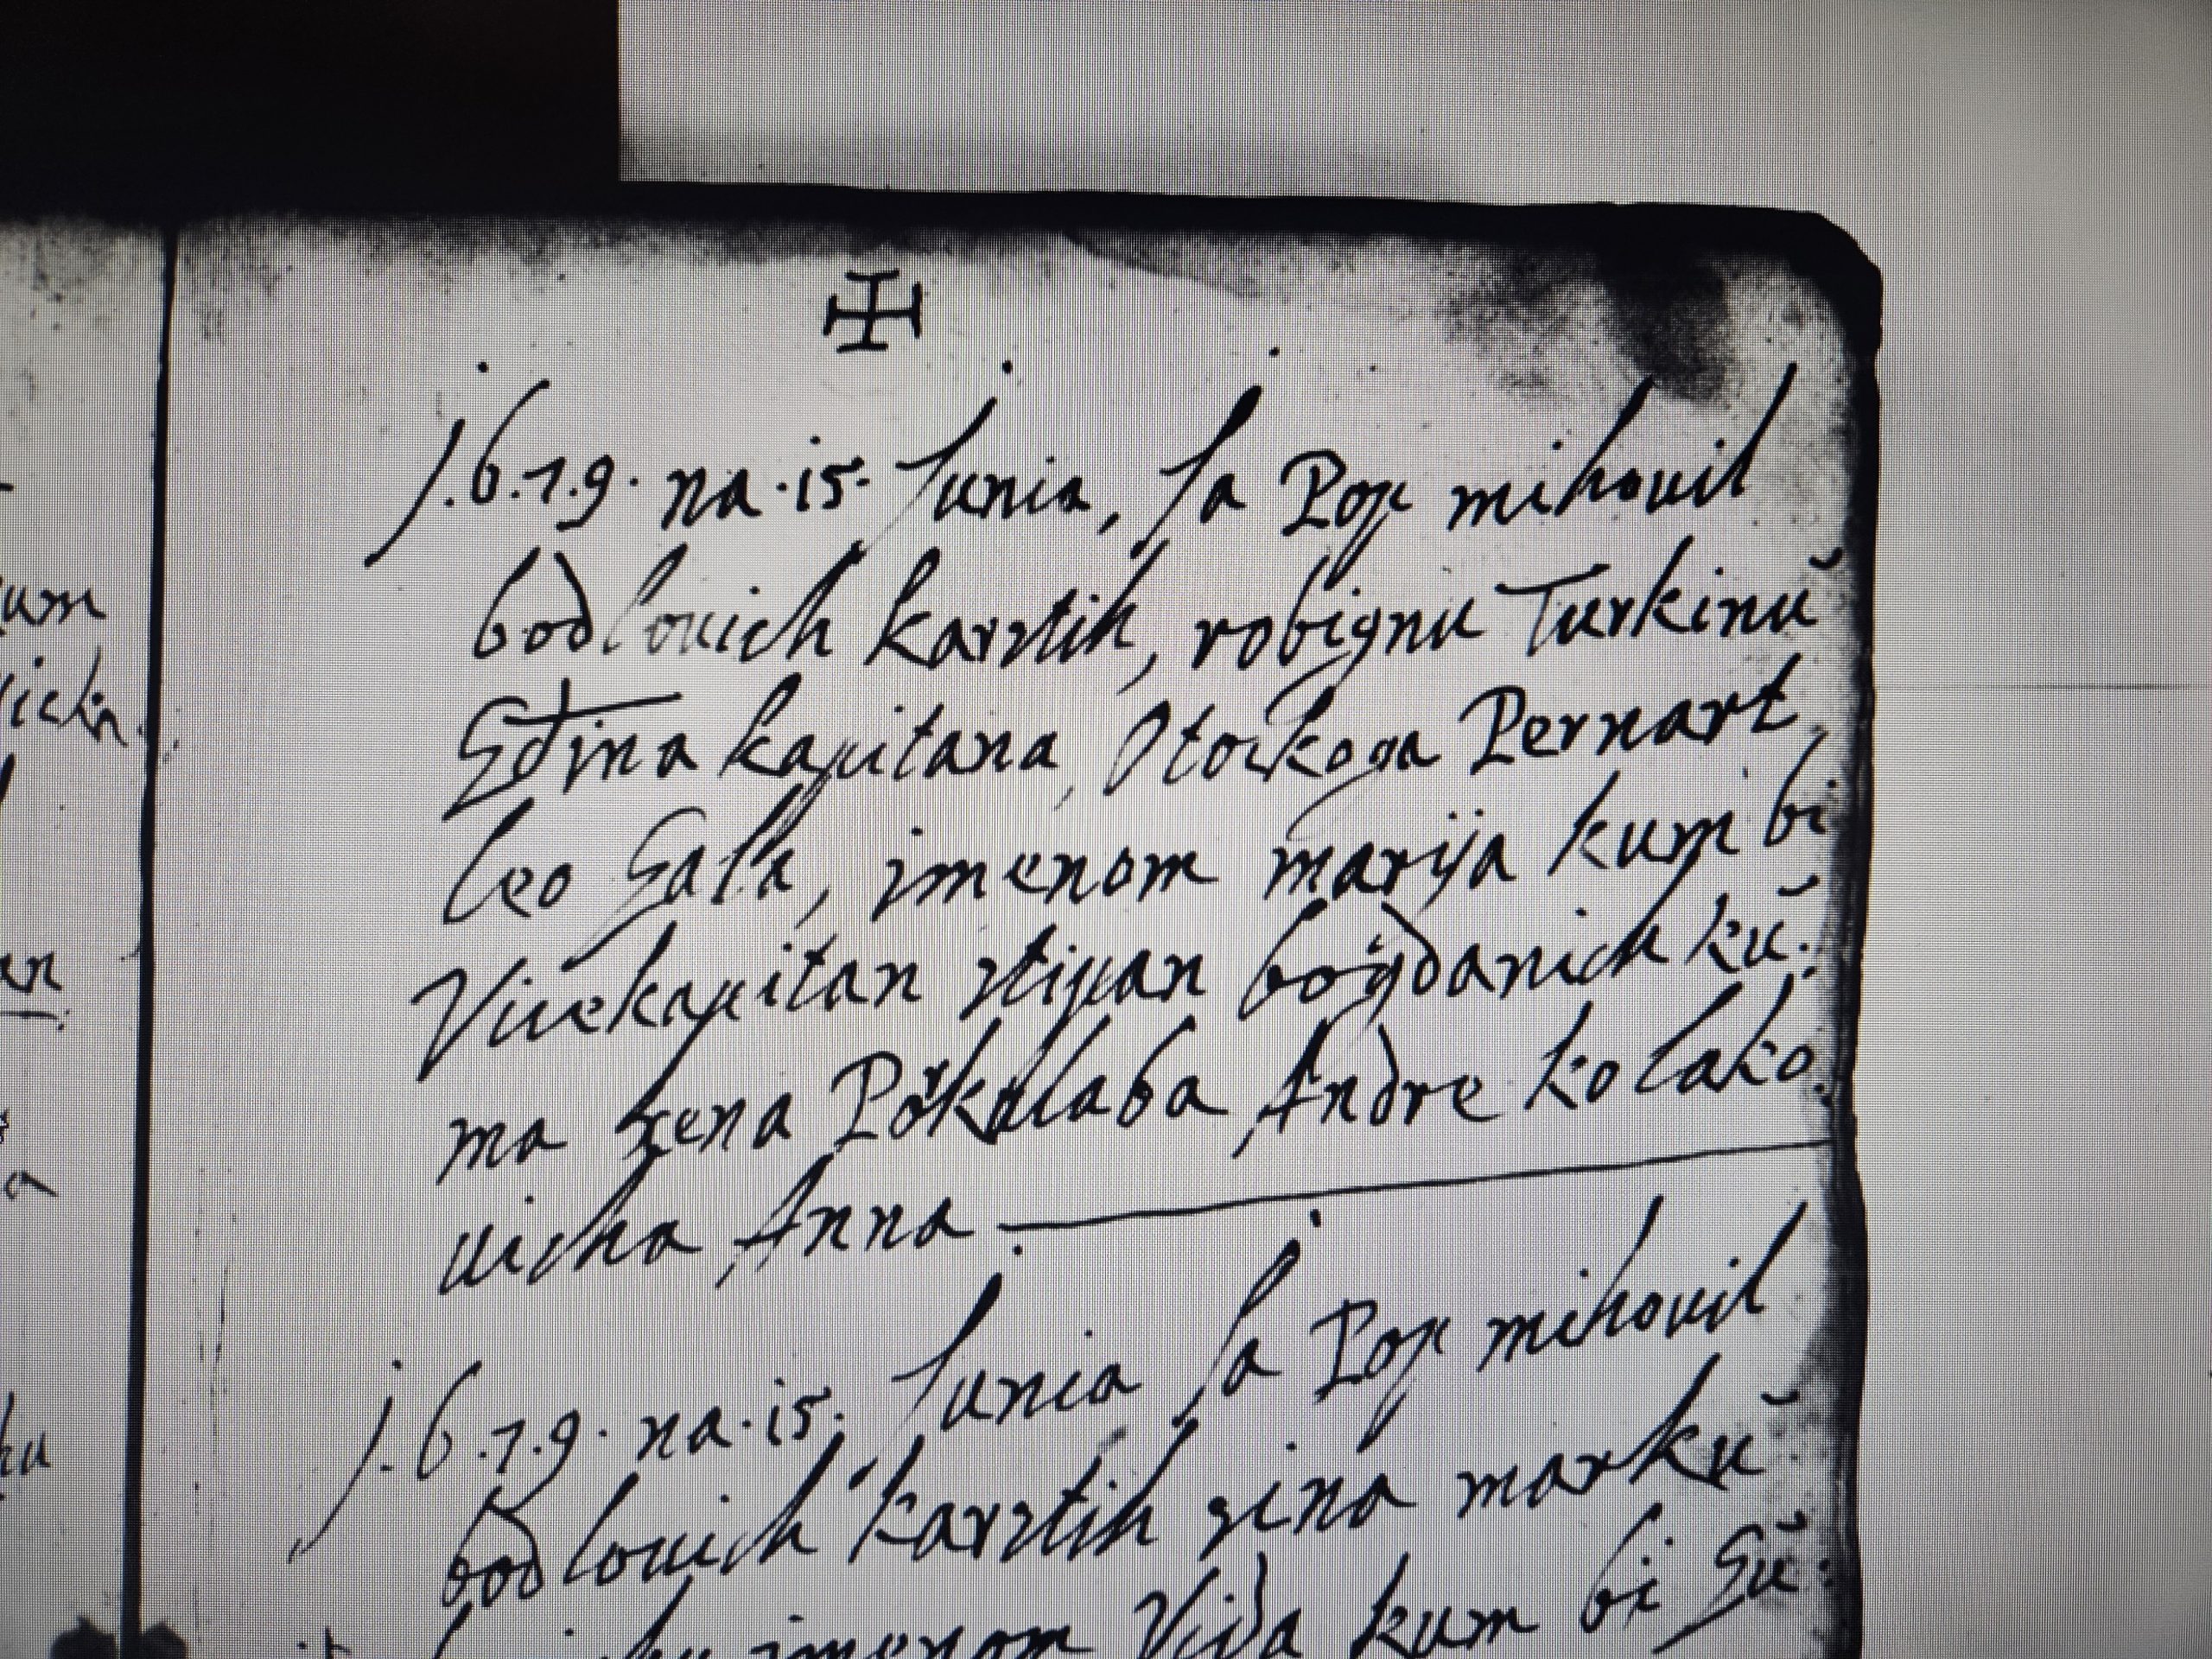 um
ich
✠
1.6.7.9. na .15. Junia, Ja Pop mihouil
bodlouich karstih, robignu Turkinŭ
Gdina kapitana, Otockoga Pernart
Leo Gala, imenom marija kum bi
Vicekapitan stipan bogdanich kŭ:
ma xena Porkulaba Andre kolako
uicha Anna
1.6.7.9. na .15. Junia Ja Pop mihouil
bodlouich karstih sina markŭ
imenom Vida kum bi Gŭ: